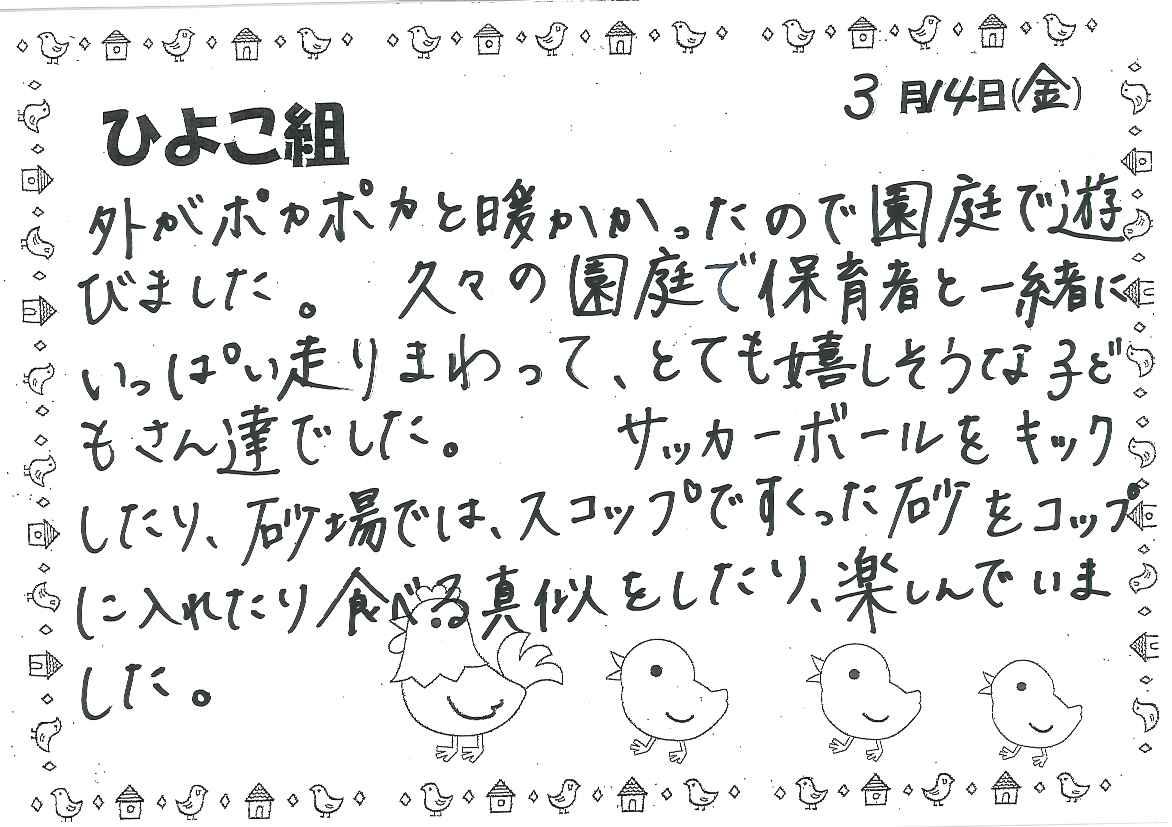 3月14日(金)
ひよこ組
外がポカポカと暖かかったので園庭で遊
びました。 久々の園庭で保育者と一緒に
いっぱい走りまわって、とても嬉しそうな子ど
もさん達でした。 サッカーボールをキック
したり、砂場では、スコップですくった砂をコップ
に入れたり食べる真似をしたり、楽しんでいま
した。